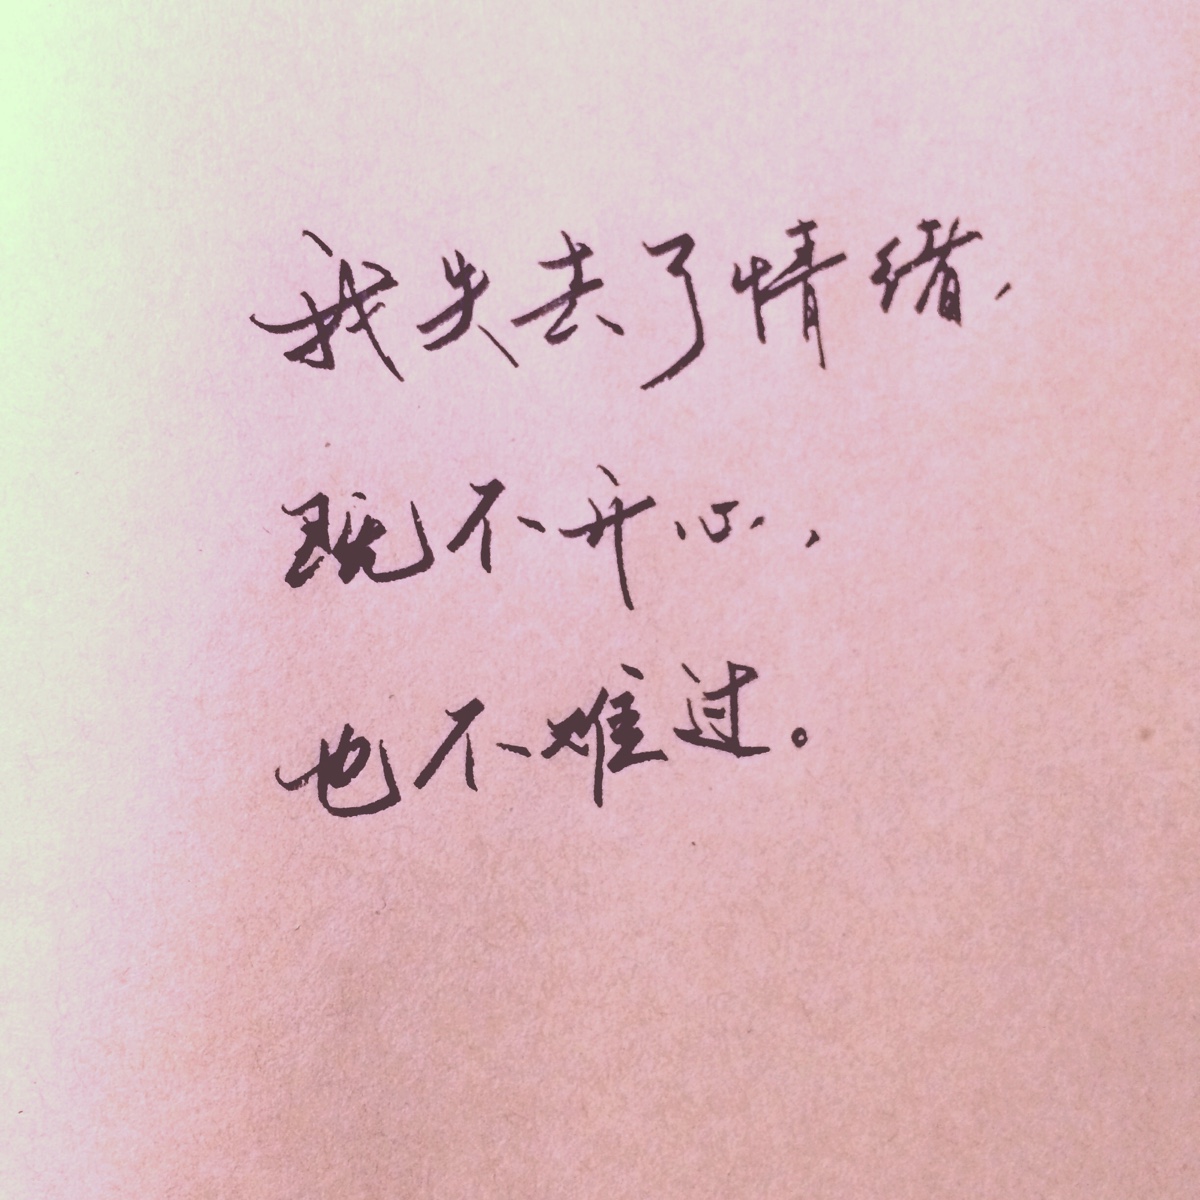 我失去了情绪，
既不开心，
也不难过。